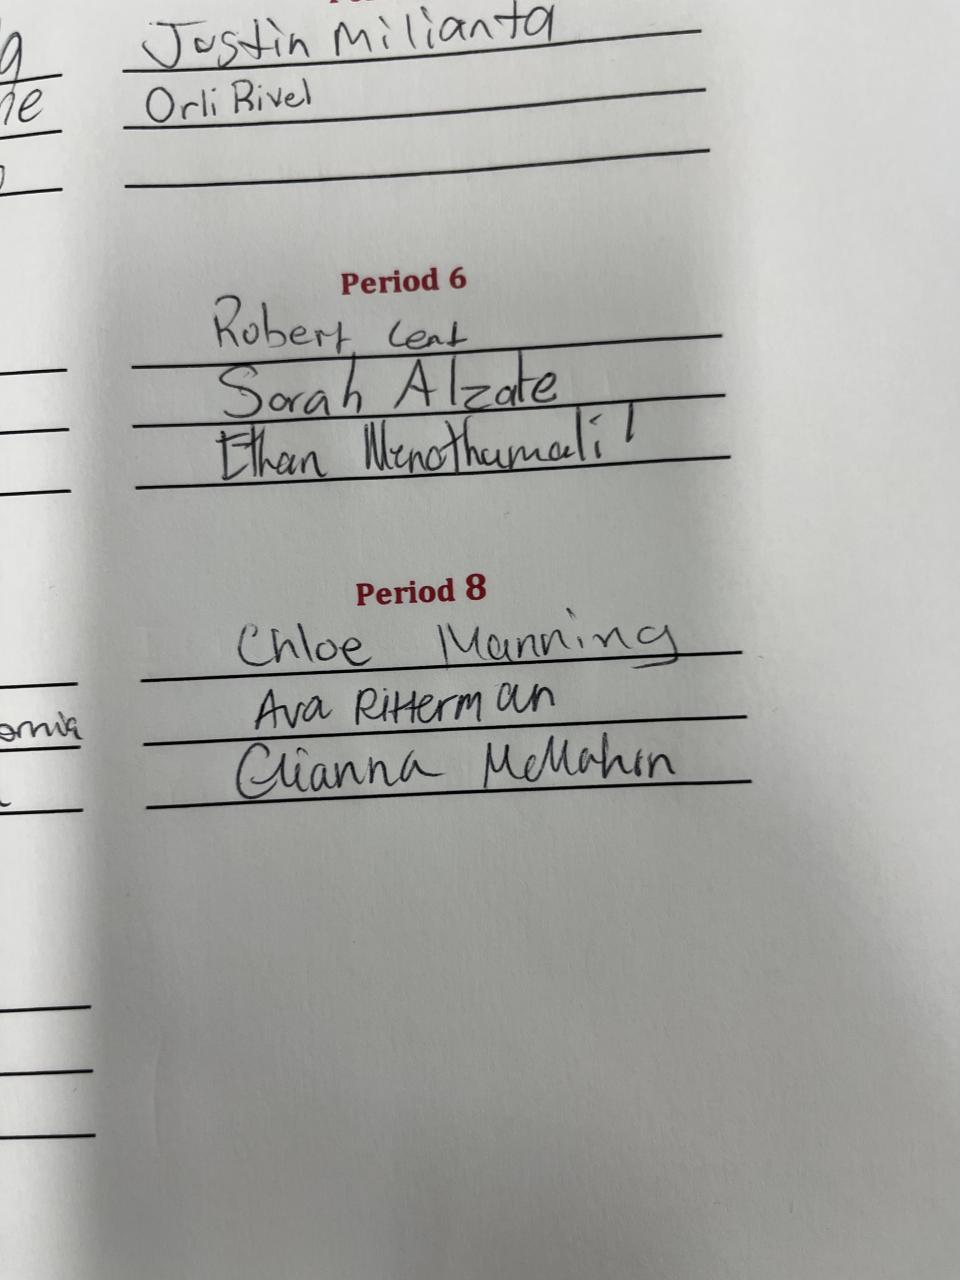 Justin Milianta
Orli Rivel
Period 6
Robert Lent
Sarah Alzate
Ethan
Period 8
Chloe Manning
Ava Ritterman
Gianna McMahon